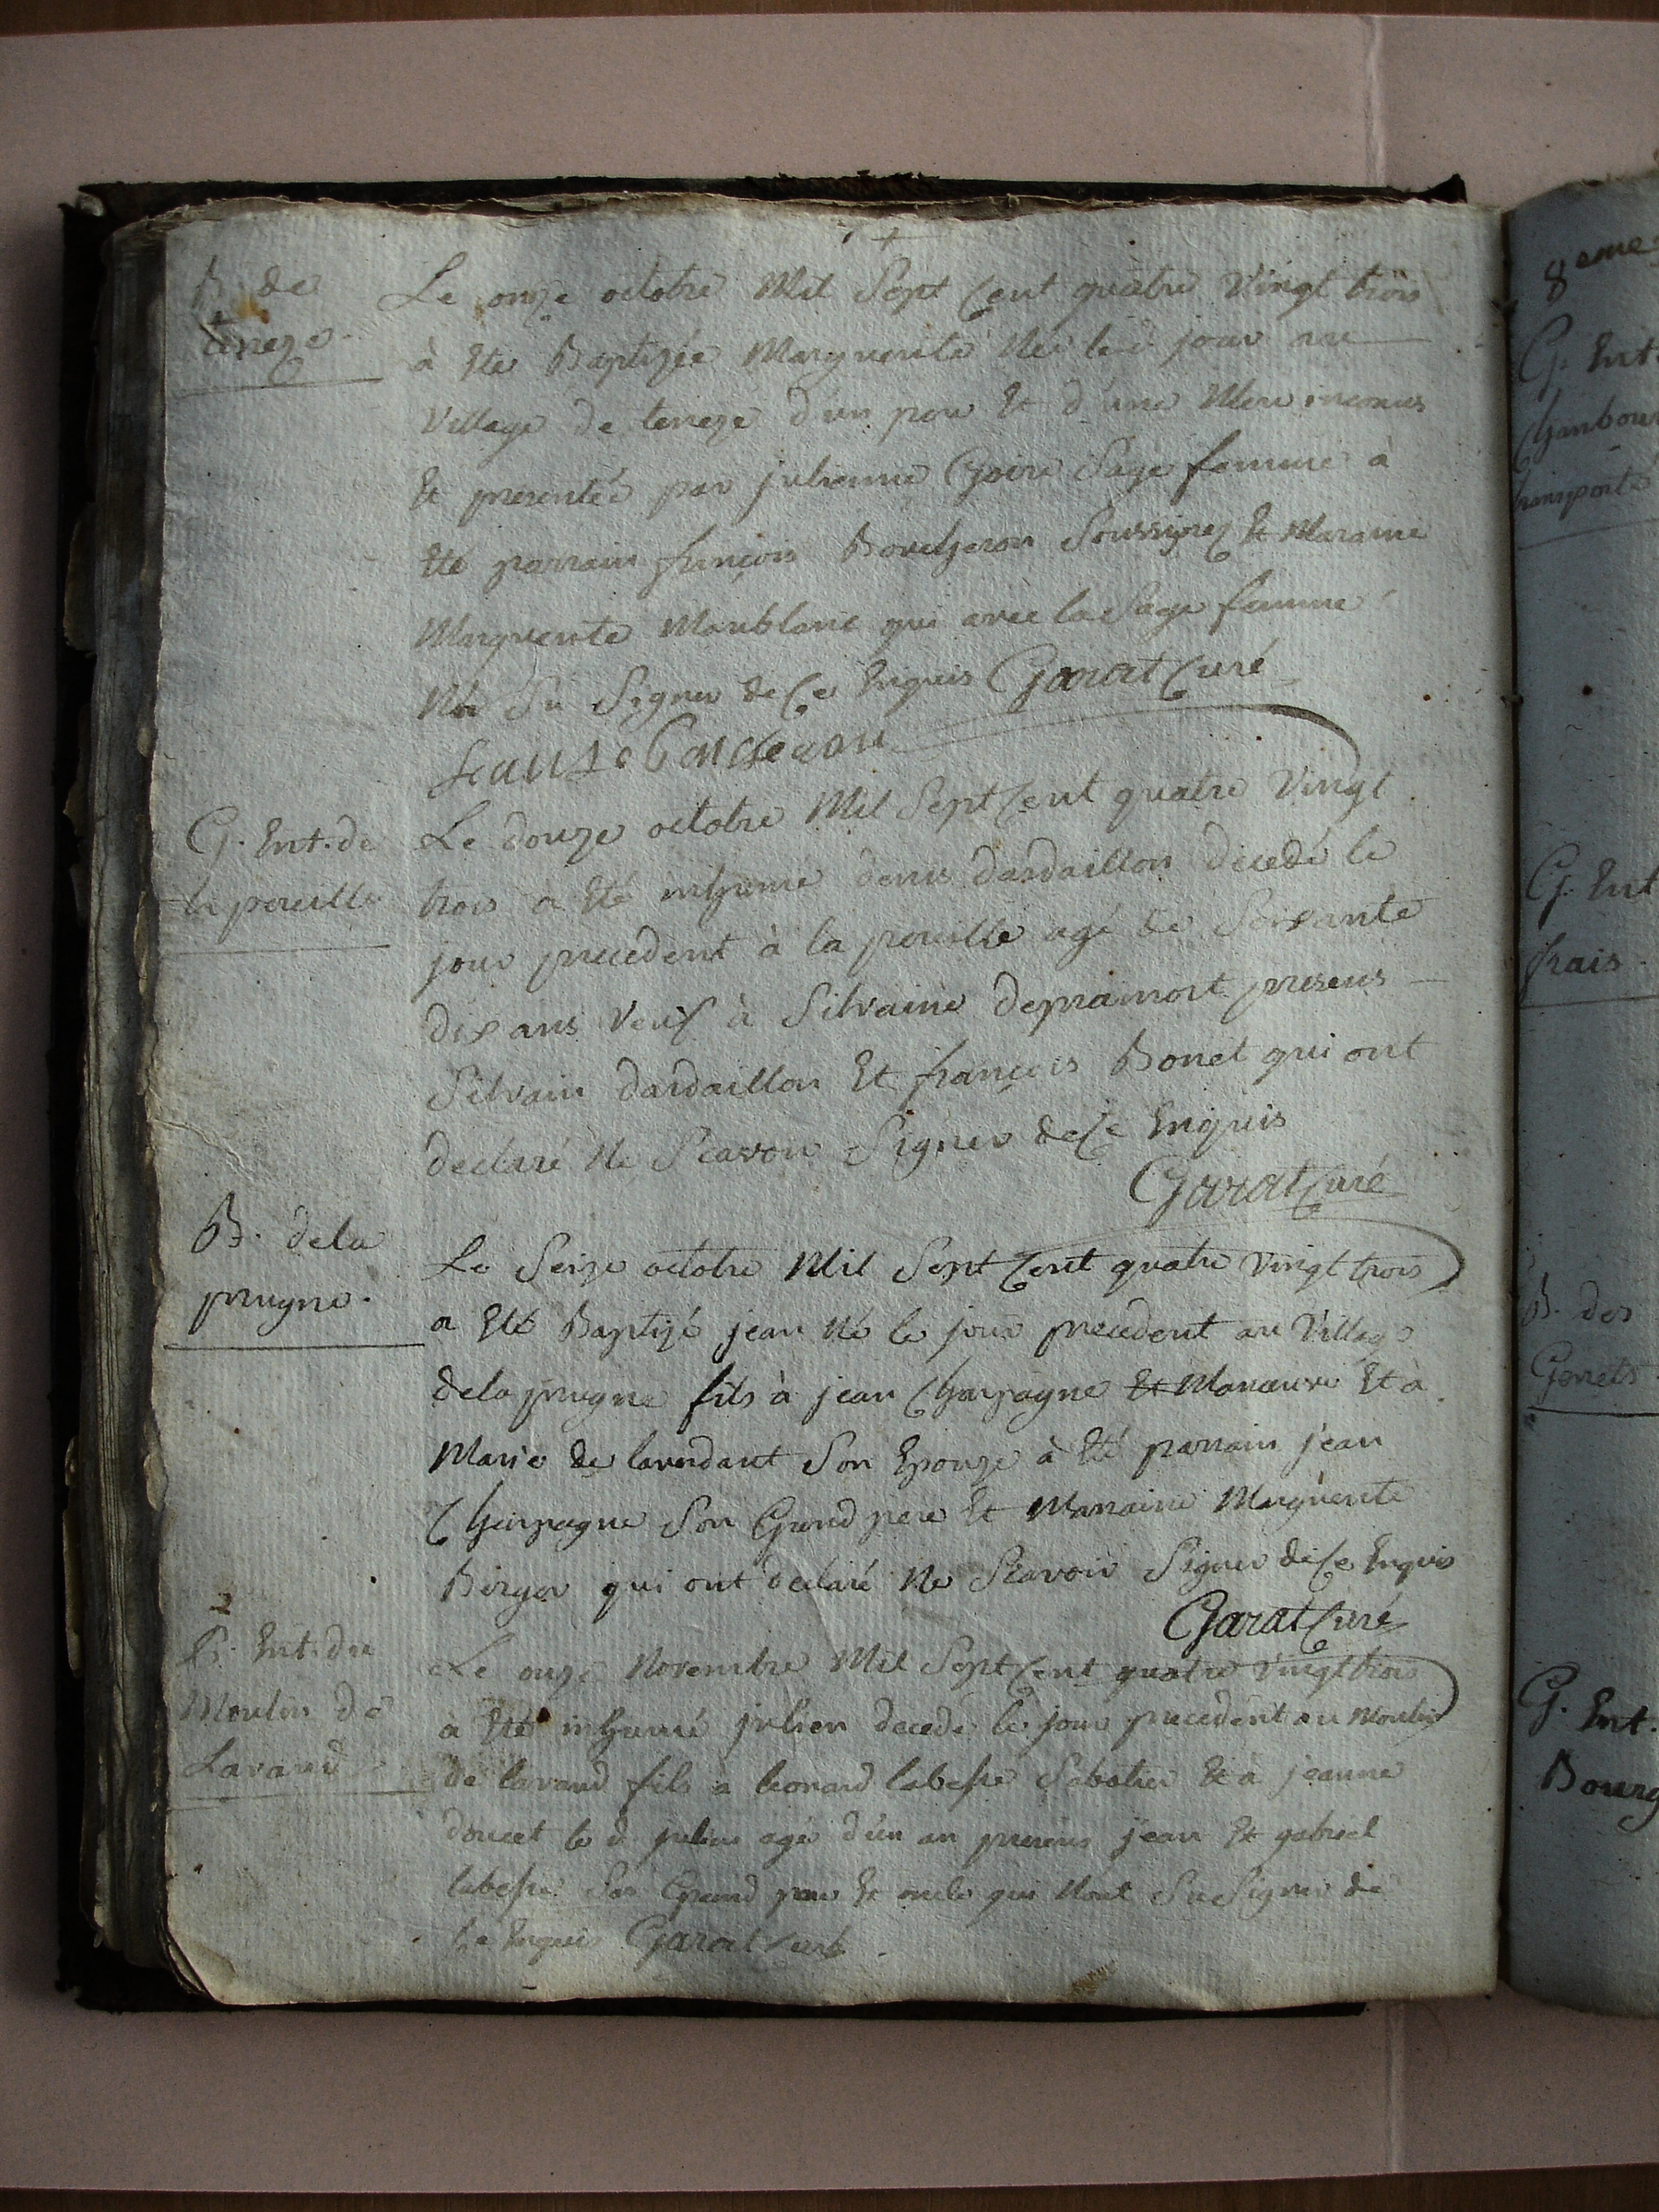 B. de
teneze
Le onze octobre Mil Sept Cent quatre Vingt trois
à Eté Baptizée Marguerite Neé le d. jour au
Village de teneze d'un pere Et d'une Mere inconus
Et presentée par julienne Goire Sage femme à
Eté parrain françois Boucheron Soussigné Et Maraine
Marguerite Maublanc qui avec la Sage femme
N'a Su Signer de Ce Enquis Garat Curé
G. Ent. de
la pereille
Le douze octobre Mil Sept Cent quatre Vingt
trois a Eté inhumé denis dardaillon decedé le
jour precedent à la pereille agé de Soixante
dix ans Veuf à Silvaine depramont presens
Silvain dardaillon Et françois Bonet qui ont
declaré Ne Scavoir Signer de Ce Enquis
Garat Curé
B. dela
prugne.
Le Seize octobre Mil Sept Cent quatre Vingt trois
a Eté Baptizé jean Né le jour precedent au Village
dela prugne fils à jean Chargagne Et Manœuvre Et à
Marie de laverdant Son Epouze à Eté parrain jean
Chargagne Son Grand pere Et Marraine Marguerite
qui ont declaré Ne Scavoir Signer de Ce Enquis
Garat Curé
Ent. du
Moulin de
Lavaud
Le onze Novembre Mil Sept Cent quatre Vingt trois
à Eté inhumé julien decedé le jour precedent au Moulin
de lavaud fils a leonard labesse Sabotier Et à jeanne
doucet le d. julien agé d'un an presens jean Et gabriel
labesse Son Grand pere Et oncle qui N'ont Su Signer de
Ce Enquis Garat Curé
8eme
G. Ent.
G. Ent
frais.
B. des
Genets
G. Ent.
Bourg